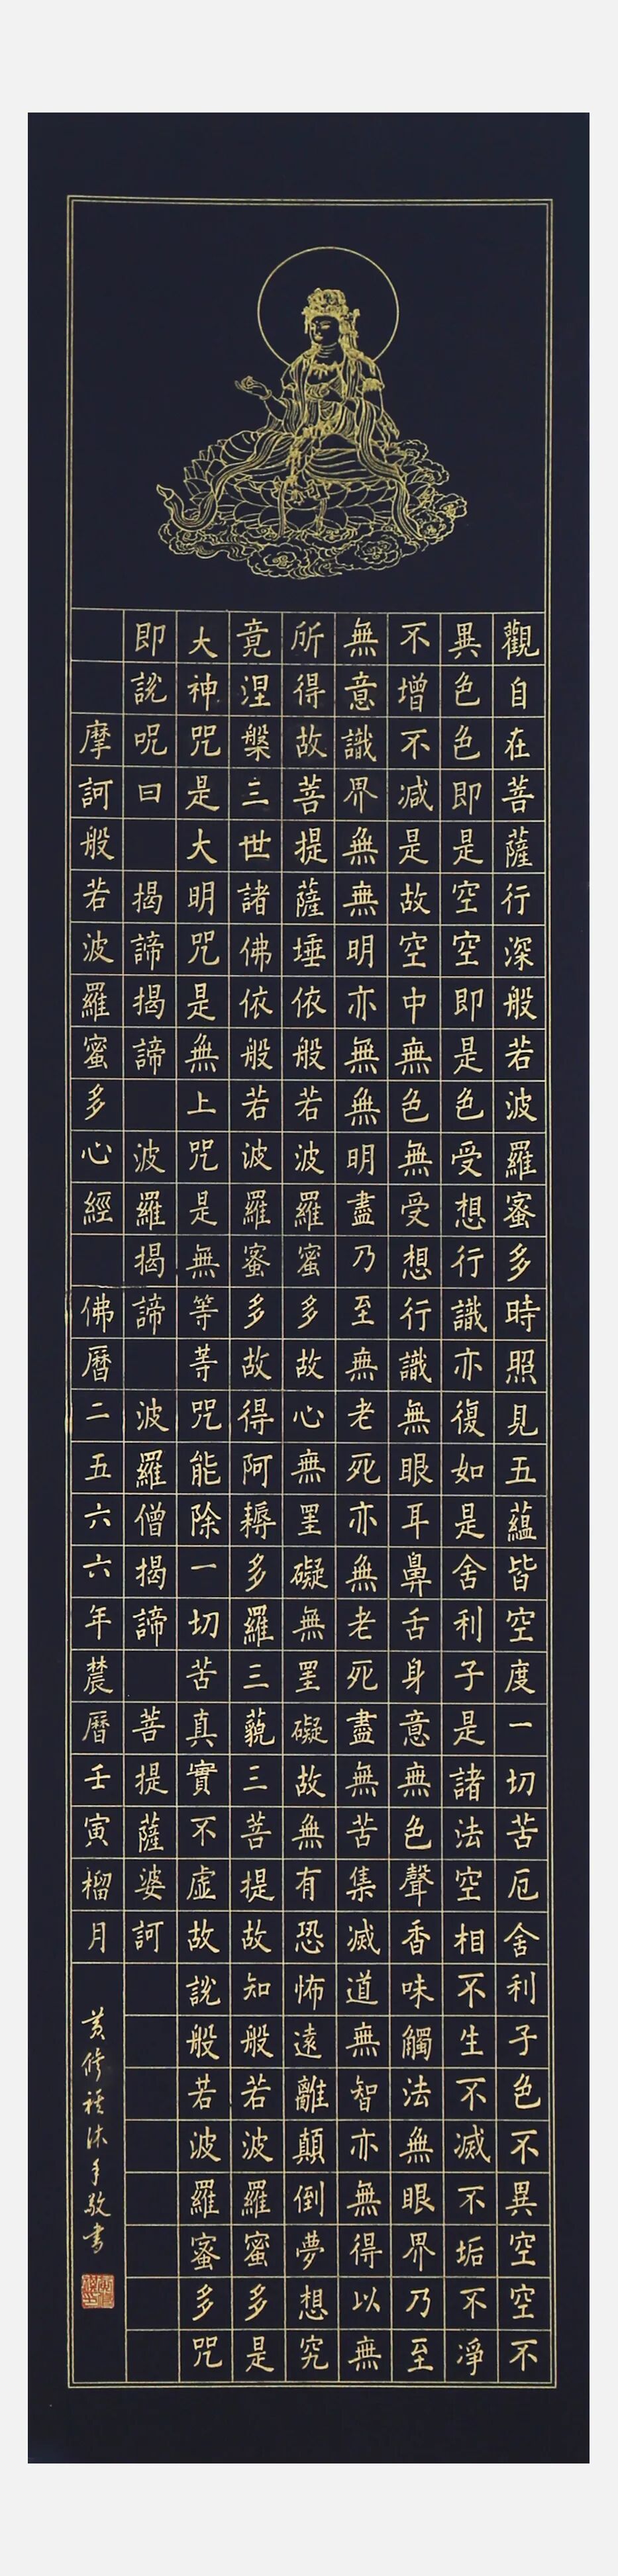 觀自在菩薩行深般若波羅蜜多時照見五蘊皆空度一切苦厄舍利子色不異空空不
異色色即是空空即是色受想行識亦復如是舍利子是諸法空相不生不滅不垢不淨
不增不減是故空中無色無受想行識無眼耳鼻舌身意無色聲香味觸法無眼界乃至
無意識界無無明亦無無明盡乃至無老死亦無老死盡無苦集滅道無智亦無得以無
所得故菩提薩埵依般若波羅蜜多故心無罣礙無罣礙故無有恐怖遠離顛倒夢想究
竟涅槃三世諸佛依般若波羅蜜多故得阿耨多羅三藐三菩提故知般若波羅蜜多是
大神咒是大明咒是無上咒是無等等咒能除一切苦真實不虛故說般若波羅蜜多咒
即說呪曰 揭諦揭諦 波羅揭諦 波羅僧揭諦 菩提薩婆訶
摩訶般若波羅蜜多心經 佛曆二五六六年農曆壬寅榴月
黃修 沐手敬書